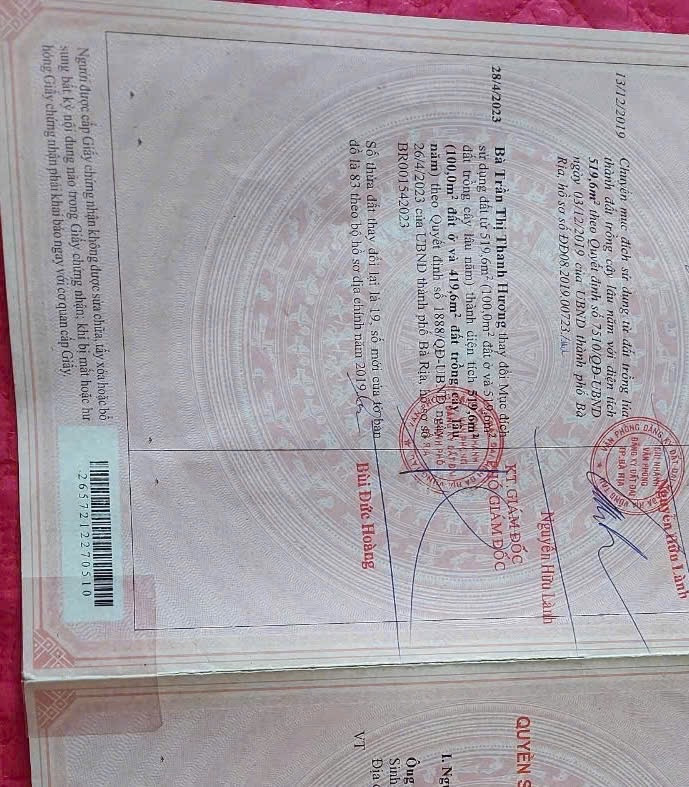 13/12/2019 Chuyển mục đích sử dụng từ đất trồng lúa
thành đất trồng cây lâu năm với diện tích
519,6m² theo Quyết định số 7516/QĐ-UBND
ngày 03/12/2019 của UBND thành phố Bà
Rịa, hồ sơ số ĐĐ08.2019.00723
Nguyễn Hữu Lành
VĂN PHÒNG
ĐĂNG KÝ ĐẤT ĐAI
TP. BÀ RỊA
Nguyễn Hữu Lành
28/4/2023 Bà Trần Thị Thanh Hương thay đổi Mục đích
sử dụng đất từ 519,6m² (100,0m² đất ở và
đất trồng cây lâu năm) thành diện tích 519,6m²
(100,0m² đất ở và 419,6m² đất trồng cây lâu
năm) theo Quyết định số 1888/QĐ-UBND ngày
26/4/2023 của UBND thành phố Bà Rịa, hồ sơ số
BR001542023
KT. GIÁM ĐỐC
PHÓ GIÁM ĐỐC
Số thửa đất thay đổi lại là 19, số mới của tờ bản
đồ là 83 theo bộ hồ sơ địa chính năm 2019
Bùi Đức Hoàng
Người được cấp Giấy chứng nhận không được sửa chữa, tẩy xóa hoặc bổ
sung bất kỳ nội dung nào trong Giấy chứng nhận; khi bị mất hoặc hư
hỏng Giấy chứng nhận phải khai báo ngay với cơ quan cấp Giấy.
2657212270510
QUYỀN S
I. Ng
Ông
Sinh
Địa c
VT